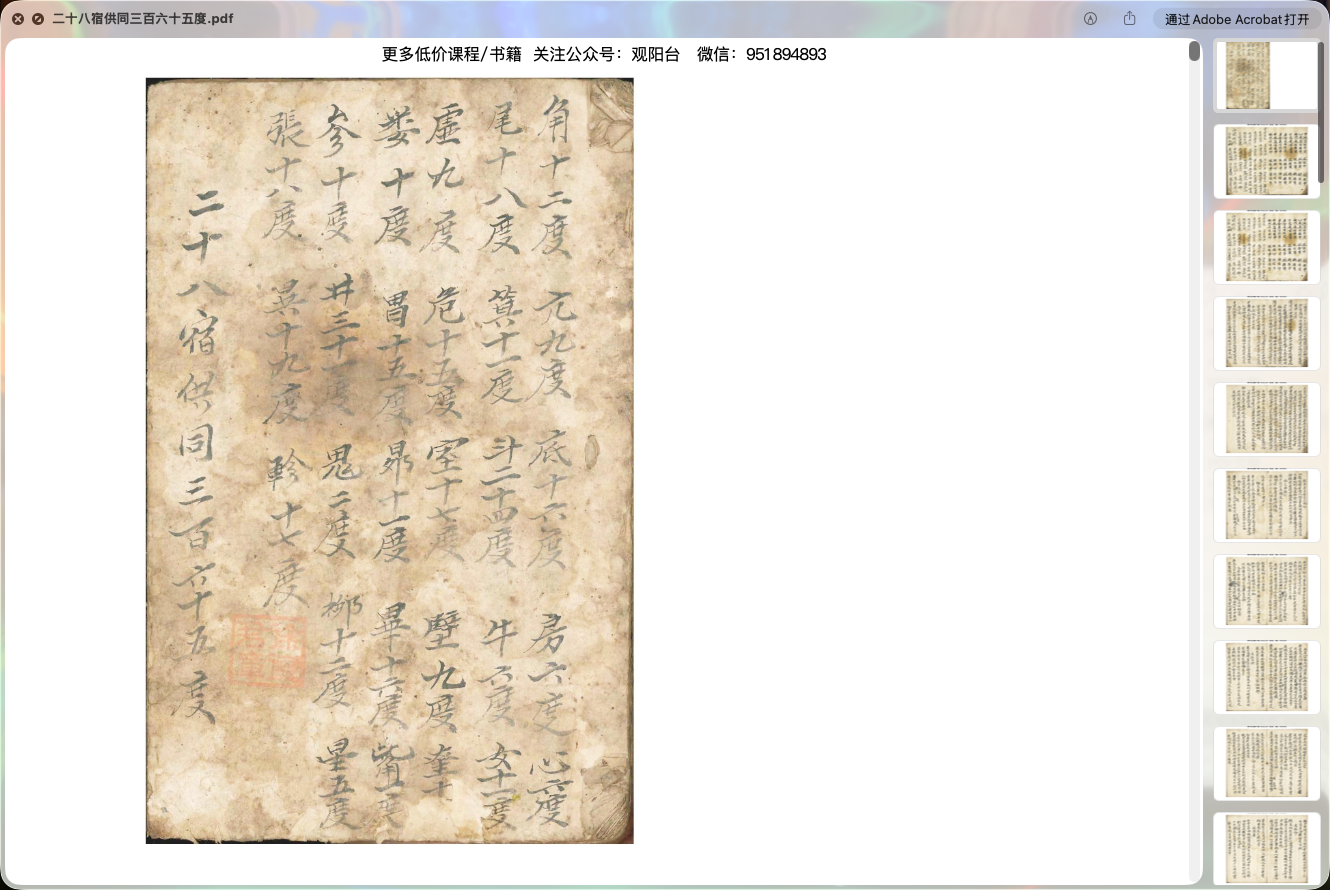 二十八宿供同三百六十五度.pdf
通过Adobe Acrobat打开
更多低价课程/书籍 关注公众号：观阳台 微信：951894893
角十二度 亢九度 底十六度 房六度 心六度
尾十八度 箕十一度 斗二十四度 牛六度 女十一度
虚九度 危十五度 室十七度 壁九度 奎十
娄十度 胃十五度 昴十一度 畢十六度 觜一度
参十度 井三十一度 鬼二度 柳十二度 星五度
張十八度 翼十九度 軫十七度
二十八宿供同三百六十五度